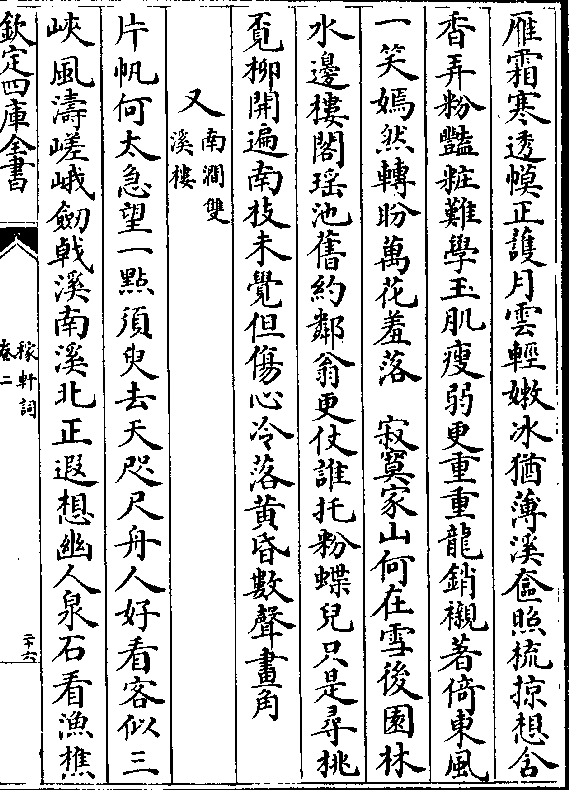 雁霜寒透幙正護月雲輕嫩冰猶薄溪奩照梳掠想含
香弄粉豔粧難學玉肌瘦弱更重重龍銷襯著倚東風
一笑嫣然轉盼萬花羞落　寂寞家山何在雪後園林
水邊樓閣瑶池舊約鄰翁更仗誰托粉蝶兒只是尋桃
覔柳開遍南枝未覺但傷心冷落黄昏數聲畫角
又 南澗雙溪樓
片帆何太急望一點須臾去天咫尺舟人好看客似三
峽風濤嵯峨劒㦸溪南溪北正遐想幽人泉石看漁樵
欽定四庫全書
稼軒詞
卷二
二十六